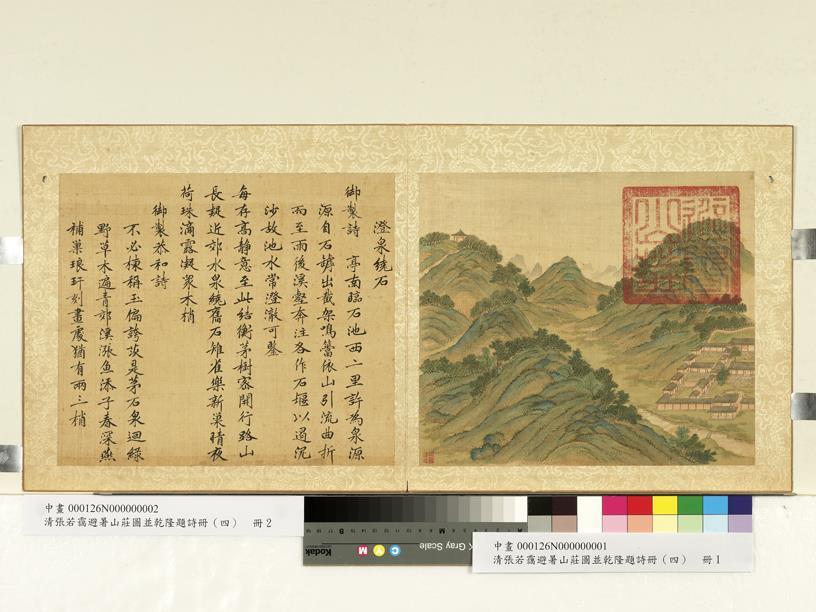 澄泉繞石
御製詩 亭南臨石池西二里許為泉源
源自石罅出截架鳴籜依山引流曲折
而至雨後溪壑奔注各作石堰以遏泥
沙故池水常澄澈可鑒
每存高靜意至此結衡茅樹密開行路山
長疑近郊水泉繞舊石雉雀樂新巢晴夜
荷珠滴露凝眾木梢
御製恭和詩
不必棟稱玉偏誇茨是茅石泉迴綠
野草木遍青郊溪漲魚添子春深燕
補巢琅玕刻畫處猶有兩三梢
中畫 000126N000000002
清張若靄避暑山莊圖並乾隆題詩冊（四） 冊2
Kodak
M Y C
K Gray Scale
中畫 000126N000000001
清張若靄避暑山莊圖並乾隆題詩冊（四） 冊1